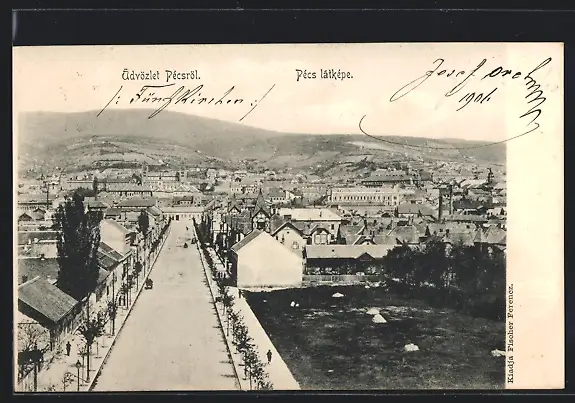 Üdvözlet Pécsről.
Pécs látképe.
/: Fünfkirchen :/
Josef
1901
Kiadja Fischer Ferencz.